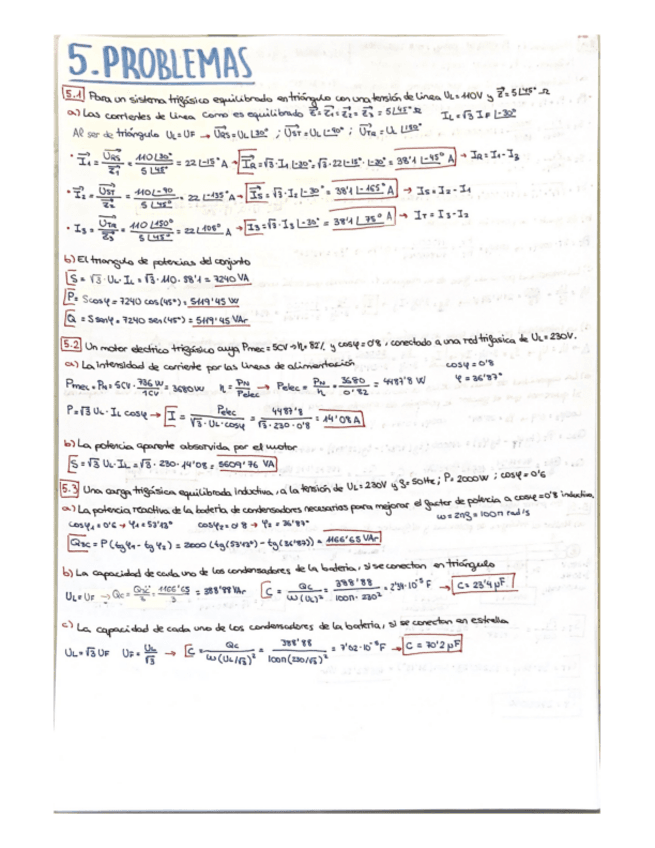 5. PROBLEMAS
5.1 Para un sistema trifásico equilibrado en triángulo con una tensión de línea UL = 110V y Z⃗ = 5∠45° Ω
a) Las corrientes de línea como es equilibrado Z⃗ = Z⃗1 = Z⃗2 = Z⃗3 = 5∠45° Ω IL = √3 IF ∠-30°
Al ser de triángulo UL = UF → URS = UL∠30° ; UST = UL∠-90° ; UTR = UL∠150°
• I1 = URS/Z1 = 110∠30°/5∠45° = 22∠-15° A → IR = √3 · I1∠-30° = √3 · 22∠-15° · ∠-30° = 38'1∠-45° A → IR = I1 - I3
• I2 = UST/Z2 = 110∠-90/5∠45° = 22∠-135° A → IS = √3 · I2∠-30° = 38'1∠-165° A → IS = I2 - I1
• I3 = UTR/Z3 = 110∠150°/5∠45° = 22∠105° A → I3 = √3 · I3∠-30° = 38'1∠75° A → IT = I3 - I2
b) El triangulo de potencias del conjunto
S = √3 · UL · IL = √3 · 110 · 38'1 = 7240 VA
P = S cosφ = 7240 cos(45°) = 5119'45 W
Q = S senφ = 7240 sen(45°) = 5119'45 VAr
5.2 Un motor electrico trifásico cuya Pmec = 5CV → η = 82% y cosφ = 0'8, conectado a una red trifasica de UL = 230V.
a) La intensidad de corriente por las lineas de alimentación cosφ = 0'8
φ = 36'87°
Pmec = PN = 5CV · 736 W/1CV = 3680W η = PN/Pelec → Pelec = PN/η = 3680/0'82 = 4487'8 W
P = √3 UL · IL cosφ → I = Pelec/√3 · UL · cosφ = 4487'8/√3 · 230 · 0'8 = 14'08 A
b) La potencia aparente absorvida por el motor
S = √3 UL · IL = √3 · 230 · 14'08 = 5609'76 VA
5.3 Una carga trifásica equilibrada inductiva, a la tensión de UL = 230V y f = 50Hz ; P = 2000W ; cosφ = 0'6
a) La potencia reactiva de la batería de condensadores necesarias para mejorar el factor de potencia a cosφ = 0'8 inductivo,
ω = 2πf = 100π rad/s
cosφ1 = 0'6 → φ1 = 53'13° cosφ2 = 0'8 → φ2 = 36'87°
QBC = P (tgφ1 - tgφ2) = 2000 (tg(53'13°) - tg(36'87)) = 1166'65 VAr
b) La capacidad de cada uno de los condensadores de la bateria, si se conectan en triángulo
UL = UF → QC = QBC/3 = 1166'65/3 = 388'88 VAr C = QC/ω(UL)² = 388'88/100π · 230² = 2'34 · 10⁻⁵ F → C = 23'4 μF
c) La capacidad de cada uno de los condensadores de la batería, si se conectan en estrella
UL = √3 UF UF = UL/√3 → C = QC/ω(UL/√3)² = 388'88/100π(230/√3)² = 7'02 · 10⁻⁵ F → C = 70'2 μF